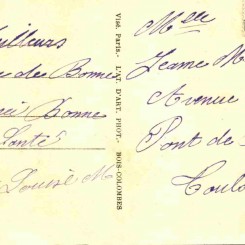 eilleurs
de Bonne
Bonne
Santé
Louise M
Visé, Paris. - L'AT D'ART. PHOT. - BOIS-COLOMBES
Mlle
Jeanne M
Avenue
Pont-de-
Toulo